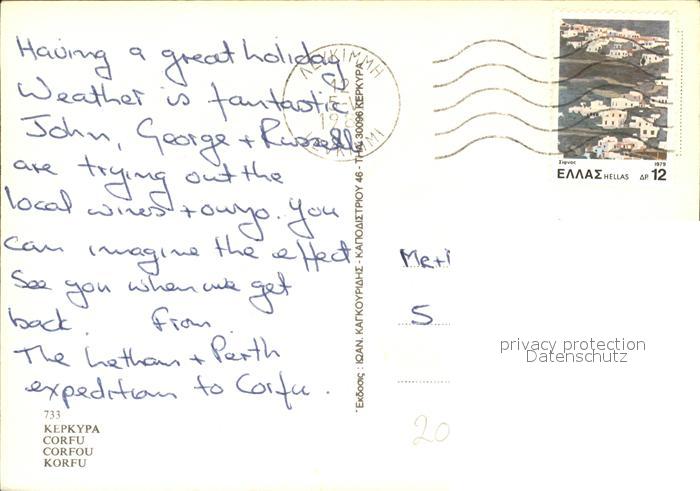 Having a great holiday
Weather is fantastic
John, George + Russell
are trying out the
local wines + ouzo. You
can imagine the effect
See you when we get
back. From
The Letham + Perth
expedition to Corfu.
733
ΚΕΡΚΥΡΑ
CORFU
CORFOU
KORFU
Ἔκδοσις : ΙΩΑΝ. ΚΑΓΚΟΥΡΙΔΗΣ - ΚΑΠΟΔΙΣΤΡΙΟΥ 46 - ΤΗΛ. 30096 ΚΕΡΚΥΡΑ
ΛΕΥΚΙΜΜΗ
12
Σίφνος 1979
ΕΛΛΑΣ HELLAS ΔΡ. 12
S
privacy protection
Datenschutz
20